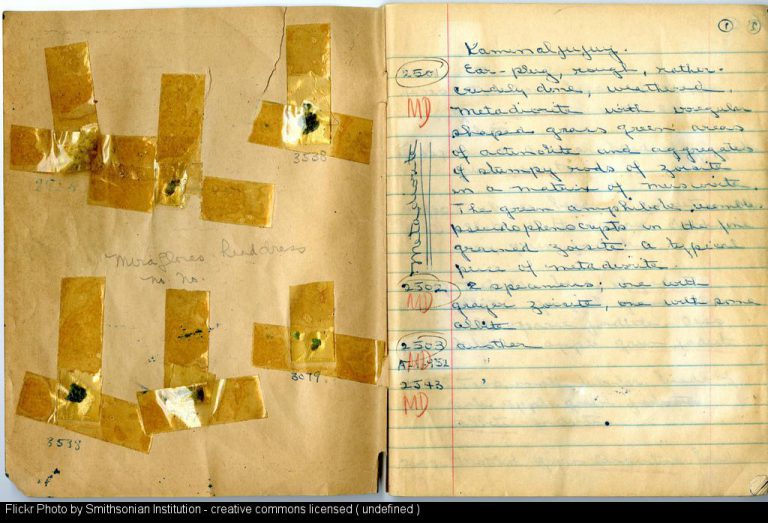 3539
Miraflores headdress
no. no.
3079
3533
1
Kaminaljuyu.
2501 Ear-plug, rough, rather
MD crudely done, weathered.
Metadiorite with irregular
shaped grass green areas
of actinolite and aggregates
of stumpy rods of zoisite
in a matrix of muscovite.
The green amphibole resemble
pseudophenocrysts in the fine
grained zoisite. A typical
piece of metadiorite.
Metadiorite
2502 2 specimens; one with
MD greyer zoisite, one with some
albite
2503 another
MD "
2543 "
MD
Flickr Photo by Smithsonian Institution - creative commons licensed ( undefined )